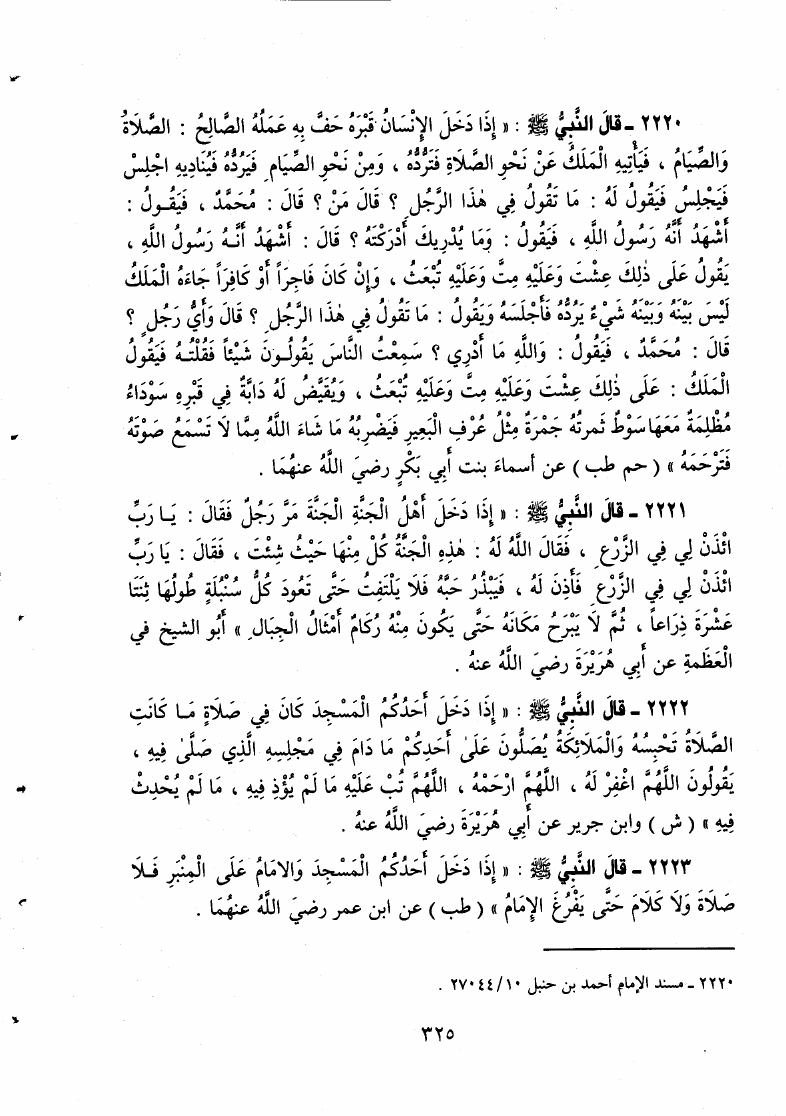 ٢٢٢٠ ـ قالَ النَّبِيُّ ﷺ : « إِذَا دَخَلَ الإِنْسَانُ قَبْرَهُ حَفَّ بِهِ عَمَلُهُ الصَّالِحُ : الصَّلَاةُ
وَالصِّيَامُ ، فَيَأْتِيهِ الْمَلَكُ عَنْ نَحْوِ الصَّلَاةِ فَتَرُدُّهُ ، وَمِنْ نَحْوِ الصِّيَامِ فَيَرُدُّهُ فَيُنَادِيهِ اجْلِسْ
فَيَجْلِسُ فَيَقُولُ لَهُ : مَا تَقُولُ فِي هٰذَا الرَّجُلِ ؟ قَالَ مَنْ ؟ قَالَ : مُحَمَّدٌ ، فَيَقُولُ :
أَشْهَدُ أَنَّهُ رَسُولُ اللَّهِ ، فَيَقُولُ : وَمَا يُدْرِيكَ أَدْرَكْتَهُ ؟ قَالَ : أَشْهَدُ أَنَّهُ رَسُولُ اللَّهِ ،
يَقُولُ عَلَى ذٰلِكَ عِشْتَ وَعَلَيْهِ مِتَّ وَعَلَيْهِ تُبْعَثُ ، وَإِنْ كَانَ فَاجِرَاً أَوْ كَافِرَاً جَاءَهُ الْمَلَكُ
لَيْسَ بَيْنَهُ وَبَيْنَهُ شَيْءٌ يَرُدُّهُ فَأَجْلَسَهُ وَيَقُولُ : مَا تَقُولُ فِي هٰذَا الرَّجُلِ ؟ قَالَ وَأَيُّ رَجُلٍ ؟
قَالَ : مُحَمَّدٌ ، فَيَقُولُ : وَاللَّهِ مَا أَدْرِي ؟ سَمِعْتُ النَّاسَ يَقُولُونَ شَيْئَاً فَقُلْتُهُ فَيَقُولُ
الْمَلَكُ : عَلَى ذٰلِكَ عِشْتَ وَعَلَيْهِ مِتَّ وَعَلَيْهِ تُبْعَثُ ، وَيُقَيَّضُ لَهُ دَابَّةٌ فِي قَبْرِهِ سَوْدَاءُ
مُظْلِمَةٌ مَعَهَا سَوْطٌ ثَمرتُهُ جَمْرَةٌ مِثْلُ عُرْفِ الْبَعِيرِ فَيَضْرِبُهُ مَا شَاءَ اللَّهُ مِمَّا لَا تَسْمَعُ صَوْتَهُ
فَتَرْحَمَهُ » ( حم طب ) عن أسماءَ بنت أبي بَكْرٍ رضيَ اللَّهُ عنهُمَا .
٢٢٢١ ـ قالَ النَّبِيُّ ﷺ : « إِذَا دَخَلَ أَهْلُ الْجَنَّةِ الْجَنَّةَ مَرَّ رَجُلٌ فَقَالَ : يَا رَبِّ
ائْذَنْ لِي فِي الزَّرْعِ ، فَقَالَ اللَّهُ لَهُ : هٰذِهِ الْجَنَّةُ كُلْ مِنْهَا حَيْثُ شِئْتَ ، فَقَالَ : يَا رَبِّ
ائْذَنْ لِي فِي الزَّرْعِ فَأَذِنَ لَهُ ، فَيَبْذُرُ حَبَّهُ فَلَا يَلْتَفِتُ حَتَّى تَعُودَ كُلُّ سُنْبُلَةٍ طُولُهَا ثِنْتَا
عَشْرَةَ ذِرَاعاً ، ثُمَّ لَا يَبْرَحُ مَكَانَهُ حَتَّى يَكُونَ مِنْهُ رُكَامٌ أَمْثَالُ الْجِبَالِ » أَبُو الشيخ في
الْعَظَمةِ عن أبي هُرَيْرَةَ رضيَ اللَّهُ عنهُ .
٢٢٢٢ ـ قالَ النَّبِيُّ ﷺ : « إِذَا دَخَلَ أَحَدُكُمُ الْمَسْجِدَ كَانَ فِي صَلَاةٍ مَا كَانَتِ
الصَّلَاةُ تَحْبِسُهُ وَالْمَلَائِكَةُ يُصَلُّونَ عَلَى أَحَدِكُمْ مَا دَامَ فِي مَجْلِسِهِ الَّذِي صَلَّى فِيهِ ،
يَقُولُونَ اللَّهُمَّ اغْفِرْ لَهُ ، اللَّهُمَّ ارْحَمْهُ ، اللَّهُمَّ تُبْ عَلَيْهِ مَا لَمْ يُؤْذِ فِيهِ ، مَا لَمْ يُحْدِثْ
فِيهِ » ( ش ) وابن جرير عن أَبِي هُرَيْرَةَ رضيَ اللَّهُ عنهُ .
٢٢٢٣ ـ قالَ النَّبِيُّ ﷺ : « إِذَا دَخَلَ أَحَدُكُمُ الْمَسْجِدَ وَالامَامُ عَلَى الْمِنْبَرِ فَلَا
صَلَاةَ وَلَا كَلَامَ حَتَّى يَفْرُغَ الإِمَامُ » ( طب ) عن ابن عمر رضيَ اللَّهُ عنهُمَا .
٢٢٢٠ ـ مسند الإمام أحمد بن حنبل ١٠/٢٧٠٤٤ .
٣٢٥